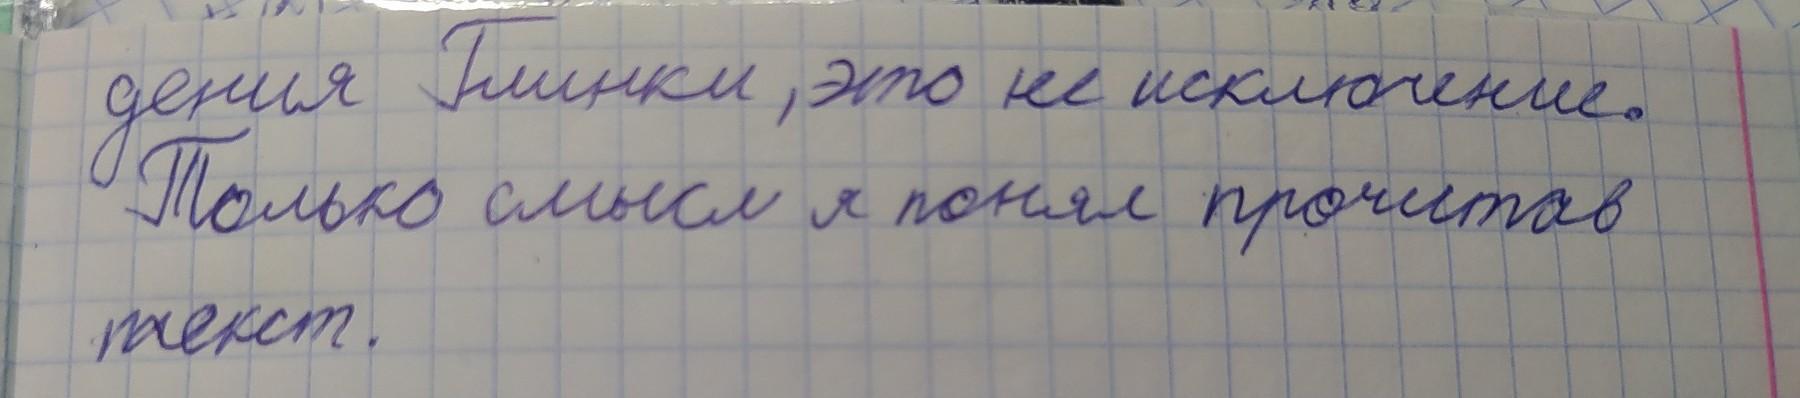 дения Глинки, это не исключение.
Только смысл я понял прочитав
текст.